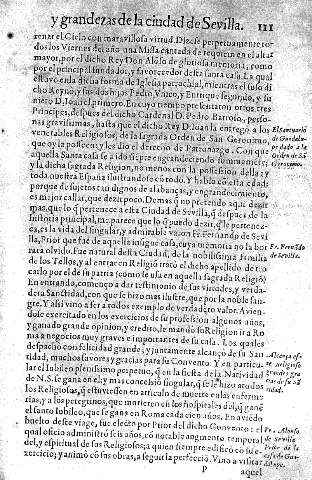 y grandezas de la ciudad de Sevilla. 111
renar el Cielo con maravillosa virtud. Dizese perpetuamente to-
dos los Viernes del año una Missa cantada de requiem en el altar
mayor, por el dicho Rey Don Alõso de gloriosa memoria, como
por el principal fundador, y favorecedor desta santa casa. La qual
estuvo en la dicha forma de Iglesia parrochial, mientras el suso di
cho Reynó, y sus dos hijos Pedro Unico, y Enrique segundo, y su
niero D. Ioan el primero. En cuyo tiempo presentaron otros tres
Principes, despues del dicho Cardenal D. Pedro Barroso, perso-
nas gravissimas, hasta que el dicho Rey D. Ioan la entregó a los
venerables Religiosos de la sagrada Orden de San Geronimo,
que oy la posseen y les dio el derecho de Patronazgo. Con que
aquella Santa casa se a ido siẽpre engrandeciendo summamẽte;
y la dicha sagrada Religion, no menos con la possession della ay
toda nuestra España ilustrandose cõ todo. Y hablo cõ esta edad;
porque de sujetos tan dignos de alabanças, y engrandecimiento,
es mejor callar, que dezir poco. Demas q̃ no pretendo aqui dezir
mas, que lo q̃ pertenece a esta Ciudad de Sevilla, q̃ despues de la
historia principal, me parece que lo q̃ puedo dezir, q̃ le pertene-
ca, es la vida del singular, y admirable varon Fr. Fernando de Sevi
lla, Prior que fue de aquella insigne casa, cuya memoria no la bor
rara olvido. Fue natural desta Ciudad, de la nobilissima familia
de los Tellos, y al entrar en Religiõ trocó el dicho apellido de tio
carlo por el de su patria (como se usa en aquella sagrada Religiõ)
En entrando, començo a dar testimonio de sus virtudes, y verda-
dera Santidad, con que se hizo mas ilustre, que por la noble san-
gre. Y assi vino a ser a todos exemplo de verdadero valor. Avien-
dose exercitado en los exercicios de su profession algunos años,
y ganado grande opinion, y credito, le mandó su Religion ir a Ro
ma a negocios muy graves e importantes de su casa. Los quales
despachó con felicidad grande; y juntamente alcançó de su San-
tidad, muchos favores y gracias para su Convento. Y en particu-
lar el Iubileo plenissimo perpetuo, q̃ en la fiesta de la Natividad
de N.S. se gana en el; y mas concession singular, q̃ se le hizo a todos
los Religiosas, q̃ estuviessen en articulo de muerte en las enferme
rias, y a los peregrinos, que muriessen en los hospitales del, q̃ ganẽ
el santo Iubileo, que se gana en Roma cada cien años. En aviẽdo
buelto deste viage, fue electo por Prior del dicho Convento: el
qual oficio administró seis años, cõ notable augmento temporal
del, y espiritual de sus Religiosos; a quien siempre edificó cõ su
exercicio; y animó cõ sus obras, a seguir la perfecciõ. Vino a visitar
P aquel
El santuario
de Guadalu-
pe dado a la
Orden de Sã
Geronimo.
Fr. Fernãdo
de Sevilla.
Alcança es-
te Religioso
grandes gra
cias de su Sã
tidad.
Fr. Alonso
de Sevilla
Prior de la